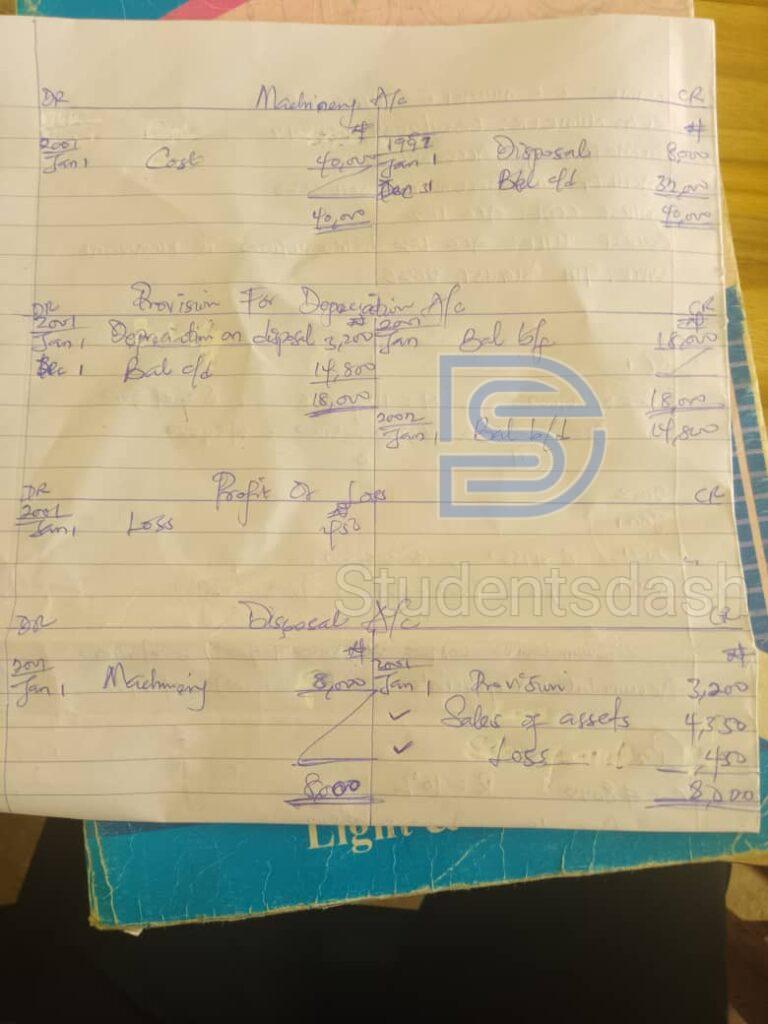 DR Machinery A/c CR
# #
2001 1992
Jan 1 Cost 40,000 Jan 1 Disposal 8,000
Dec 31 Bal c/d 32,000
40,000 40,000
DR Provision For Depreciation A/c CR
2001 # 2001 #
Jan 1 Depreciation on disposal 3,200 Jan Bal b/f 18,000
Dec 1 Bal c/d 14,800
18,000 18,000
2002
Jan 1 Bal b/d 14,800
DR Profit Or Loss CR
2001 #
Jan 1 Loss 450
Studentsdash
DR Disposal A/c CR
2001 # 2001 #
Jan 1 Machinery 8,000 Jan 1 Provision 3,200
✓ Sales of assets 4,350
✓ Loss 450
8,000 8,000
Light